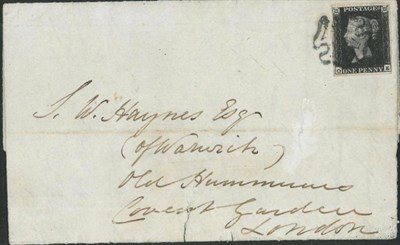 POSTAGE
ONE PENNY
S. W. Haynes Esq
(of Warwick)
Old Hummums
Covent Garden
London